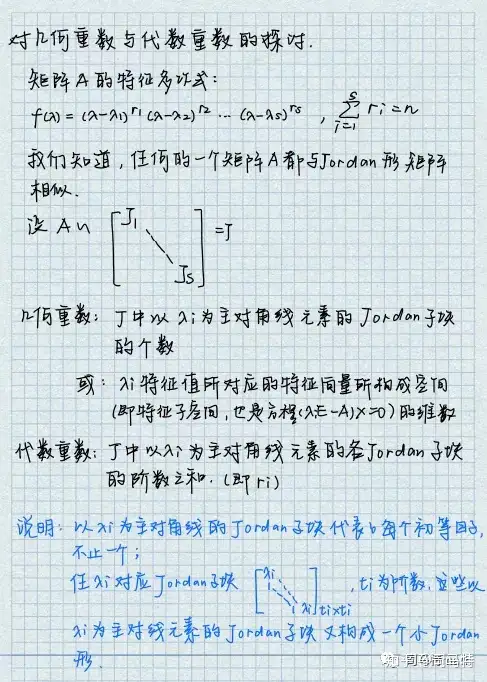 对几何重数与代数重数的探讨.
矩阵A的特征多项式:
f(λ) = (λ-λ1)^r1 (λ-λ2)^r2 ... (λ-λs)^rs , ∑_{i=1}^{s} ri = n
我们知道, 任何的一个矩阵A都与Jordan形矩阵
相似.
设 A ∽ [J1 \ Js] = J
几何重数: J中以λi为主对角线元素的Jordan子块
的个数
或: λi特征值所对应的特征向量所构成空间
(即特征子空间, 也是方程(λE-A)X=0)的维数
代数重数: J中以λi为主对角线元素的各Jordan子块
的阶数之和. (即ri)
说明: 以λi为主对角线的Jordan子块代表了每个初等因子,
不止一个;
任λi对应Jordan子块 [λi 1 \ 1 λi]ti×ti , ti为阶数, 这些以
λi为主对线元素的Jordan子块又构成一个小Jordan
形.